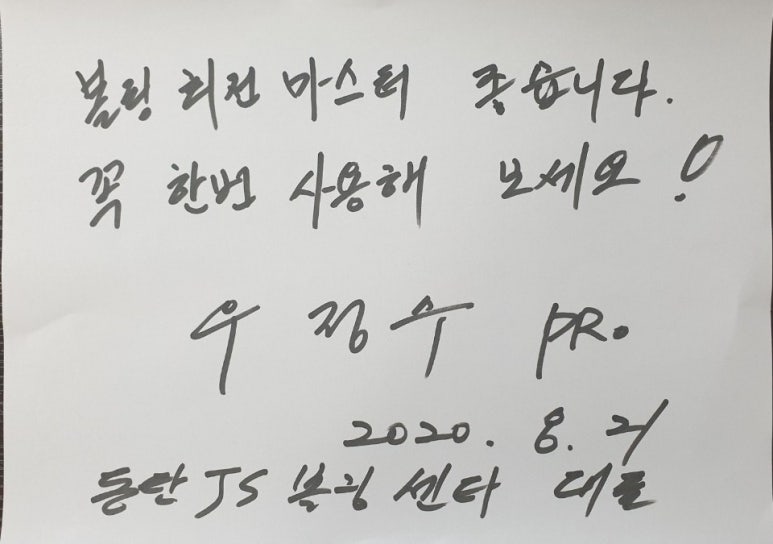 볼링 회전 마스터 좋습니다.
꼭 한번 사용해 보세요!
우정수 PR.
2020. 8. 21
동탄 JS 볼링 센타 대표